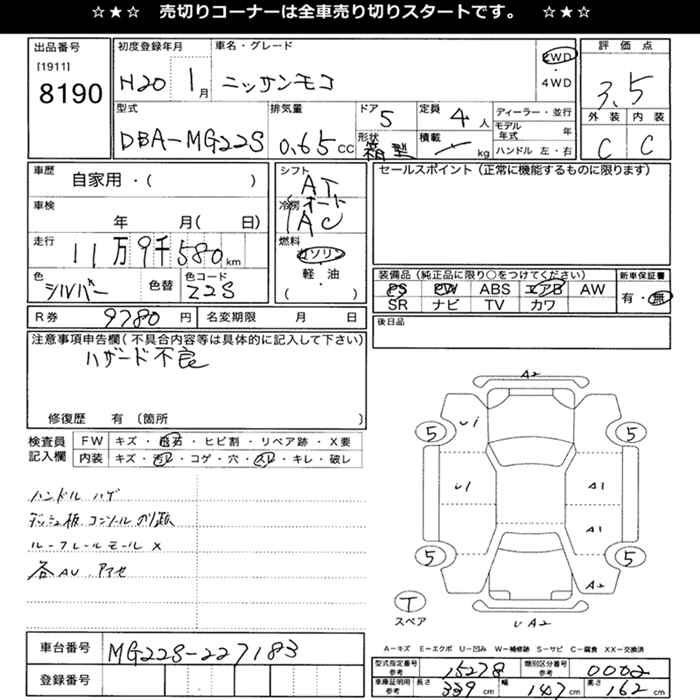 ☆★☆ 売切りコーナーは全車売り切りスタートです。 ☆★☆
出品番号
[1911]
8190
初度登録年月
H20 1月
車名・グレード
ニッサンモコ
2WD
・
4WD
評価点
3.5
外装 内装
C C
型式
DBA-MG22S
排気量
0.65cc
ドア 5
形状 箱型
定員 4人
積載 kg
ディーラー・並行
モデル年式 年
ハンドル 左・右
車歴
自家用・( )
車検
年 月( 日)
走行
11万9千580km
色 シルバー
色替
色コード Z2S
シフト
AT
冷房 オート
AC
燃料
ガソリン
・
軽・油
( )
セールスポイント(正常に機能するものに限ります)
装備品(純正品に限り○をつけてください)
PS PW ABS エアB AW
SR ナビ TV カワ
新車保証書
有・無
R券 9780円
名変期限 月 日
後日品
注意事項申告欄(不具合内容等は具体的に記入して下さい)
ハザード不良
修復歴 有(箇所 )
検査員
記入欄
FW キズ・飛石・ヒビ割・リペア跡・X要
内装 キズ・汚レ・コゲ・穴・スレ・キレ・破レ
ハンドル ハゲ
ダッシュ板 コンソール のり跡
ルーフレールモール X
各AU.アセ
A2
U1
5 5
U1 A1
A1
5 5
A2
UA2
T
スペア
A-キズ E-エクボ U-凹み W-補修跡 S-サビ C-腐食 XX-交換済
車台番号 MG22S-227183
登録番号
型式指定番号 参考 15278
類別区分番号 参考 0002
車庫証明用 参考 長さ 339cm 幅 147cm 高さ 162cm